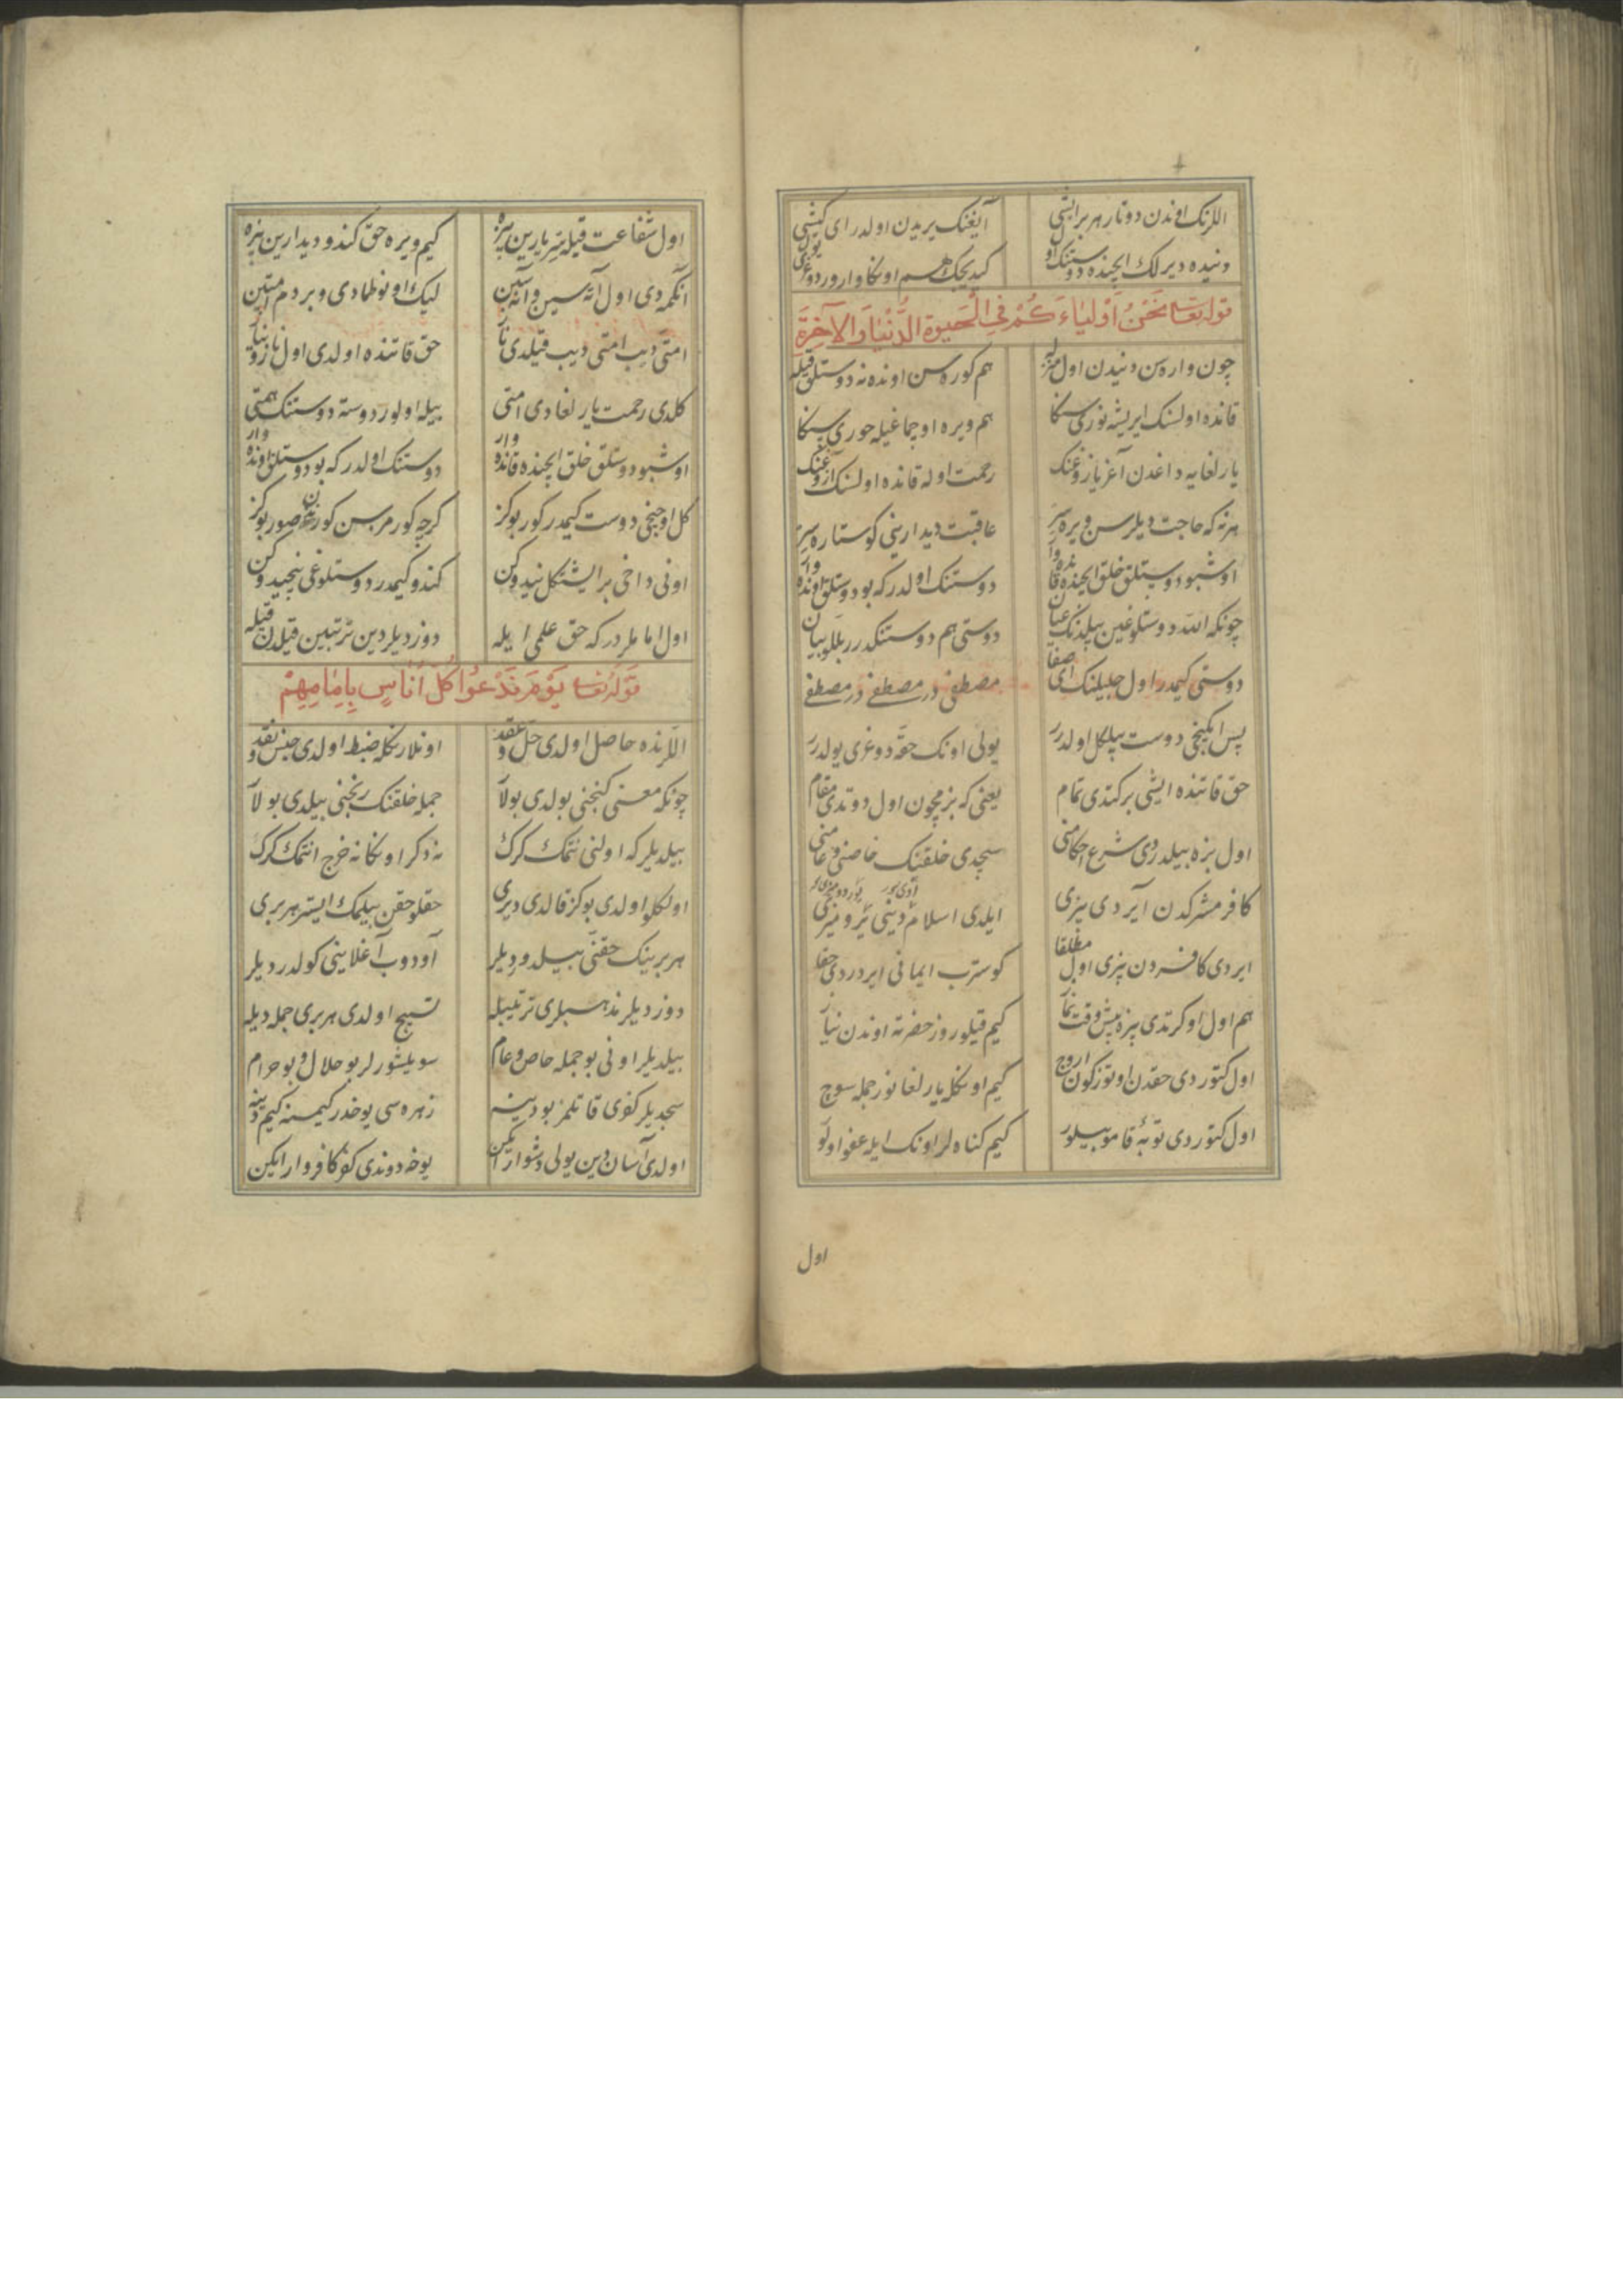 اللرنك اوندن دوتار هر بر ایشی آیغنك یریدن اولدر ای كشی
دنیده دیرلك ایچنده دوستنك او كیدیجك هم اونكا وارور دوغری یول
قوله تعا نَحْنُ اَوْلیاءَكُمْ فِی الْحَیوةِ الدُّنْیَا وَالآخِرَةِ
چون واره سن دنیدن اول منزله هم كوره سن اونده نه دوستلق قیله
قانده اولسنك ایریشه نوری سكا هم ویره اوچماغیله حوری سكا
یارلغایه داغدن آغر یازوغنك رحمت اوله قانده اولسنك آزوغنك
هرنه كه حاجت دیلرسن ویره سر عاقبت دیدارینی كوستاره سر
اوشبو دوستلق خلق ایچنده قانده وار دوستنك اولدر كه بو دوستلق اونده وار
چونكه الله دوستلوغین بیلدنك عیان دوستی هم دوستنكدر بللو بیان
دوستی كیمدر اول حبیبنك ای صفا مصطفی در مصطفی در مصطفی
پس ایكنجی دوست بیلكل اولدر یولی اونك حقه دوغری یولدر
حق قاتنده ایشی بركتدی تمام یعنی كه بزمچون اول دوتدی مقام
اول بزه بیلدردی شرع احكامنی سچدی خلقنك خاصنی و عامنی
كافر مشركدن آیردی بزی ایلدی اسلام دینی
ایردی كافردن بزی اول مطلقا كوسترب ایمانی ایردردی حقا
هم اول اوكرتدی بزه بیش وقت نماز كیم قیلوروز حضرته اوندن نیاز
اول كتوردی حقدن اوتوز كون اروج كیم اونكله یارلغانور جمله سوچ
اول كتوردی توبهٔ قامو بیلور كیم كناه لر اونك ایله عفو اولو
اول
اول شفاعت قیله سر یارین بزه كیم ویره حق كندو دیدارین بزه
آنكمدی اول آته سین و آنه سین لیك اونوطمادی و بر دم امتین
امتی دیب امتی دیب قیلدی ناز حق قاتنده اولدی اول ناز و نیاز
كلدی رحمت یارلغادی امتی بیله اولور دوسته دوستنك همتی
اوشبو دوستلق خلق ایچنده قانده وار دوستنك اولدر كه بو دوستلق اونده وار
كل اوچنجی دوست كیمدر كور بو كز كرچه كورمزسن كوزن صور بو كز
اونی داخی بر ایشتكل نیدوكن كندو كیمدر دوستلوغی نیجیدوكن
اول اماملردر كه حق علمی ایله دوزدیلر دین ترتبین قیلدن قیله
قوله تعا یَوْمَ نَدْعُوا كُلَّ اُنَاسٍ بِاِمَامِهِمْ
اللرنده حاصل اولدی حل و عقد اونلارنكله ضبط اولدی جنس و نقد
چونكه معنی كنجنی بولدی بولا جمله خلقنك رنجنی بیلدی بولا
بیلدیلر كه اولنی نتمك كرك نه دكر اونكا نه خرج اتتمك كرك
اولكلو اولدی بو كز قالدی دیری حقلو حقن بیلمك ایستر هر بری
هر برینك حقنی بیلدوردیلر آودوب آغلاینی كولدردیلر
دوزدیلر مذهبلری ترتیبله تسبیح اولدی هر بری جمله دیله
بیلدیلر اونی بو جمله خاص و عام سویلشورلر بو حلال و بو حرام
سچدیلر كفری قاتلمز بو دینه زهره سی یوخدر كیمسنه كیم دینه
اولدی آسان دین یولی دشوار ایكن یوخه دوندی كفر كافر وار ایكن